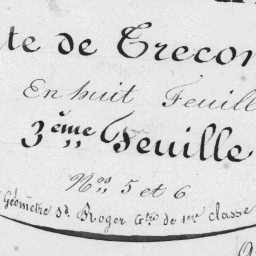 te de Trecon
En huit Feuill
3ème Feuille
Nos 5 et 6
Géomètre Sd. Roger Gtre de 1re classe